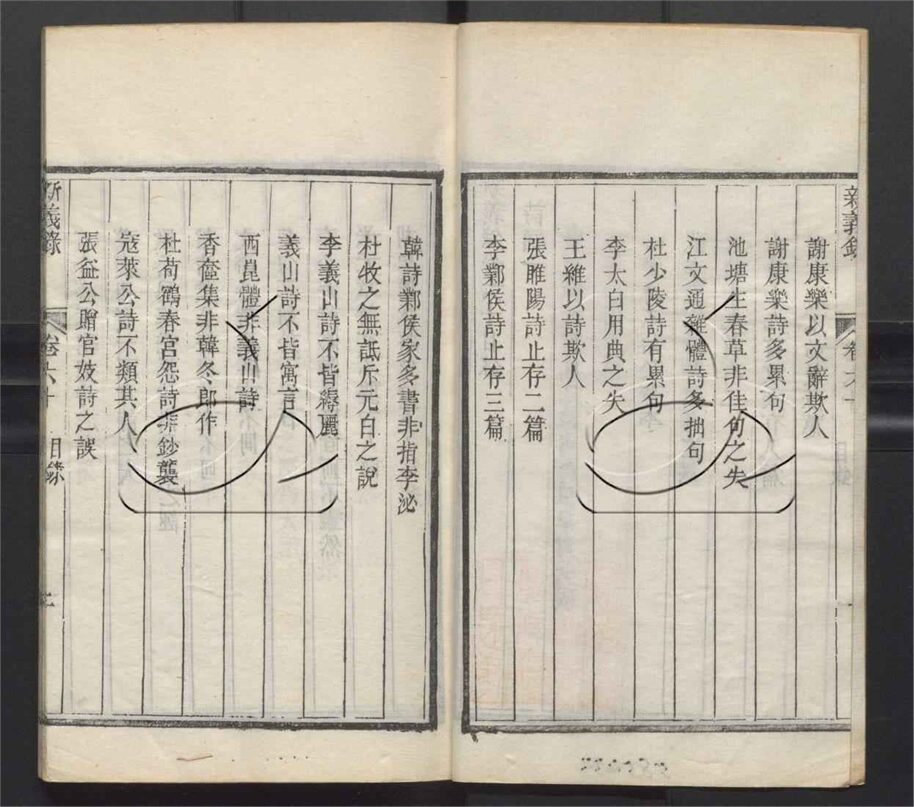 新義錄
卷六十
謝康樂以文辭欺人
謝康樂詩多累句
池塘生春草非佳句之失
江文通雜體詩多拙句
杜少陵詩有累句
李太白用典之失
王維以詩欺人
張睢陽詩止存二篇
李鄴侯詩止存三篇
韓詩鄴侯家多書非指李泌
杜牧之無詆斥元白之說
李義山詩不皆縟麗
義山詩不皆寓言
西崑體非義山詩
香奩集非韓冬郎作
杜荀鶴春宮怨詩非鈔襲
寇萊公詩不類其人
張益公贈官妓詩之誤
新義錄
卷六十
目錄